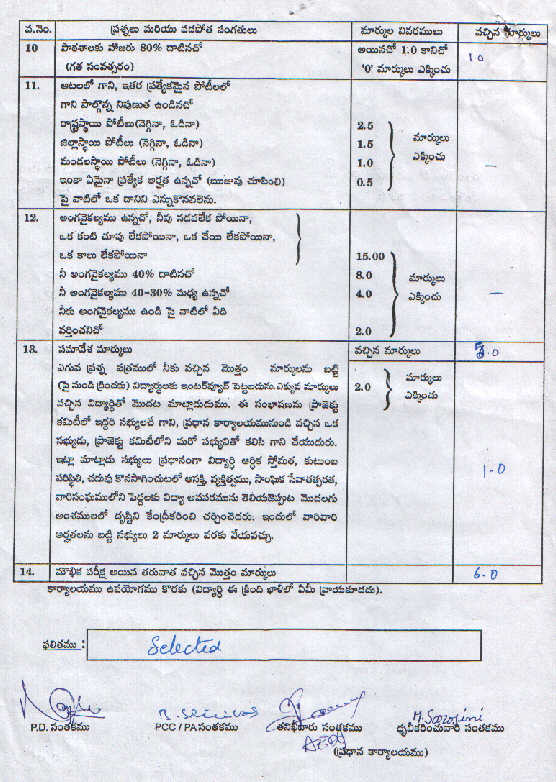 వ.నెం. ప్రశ్నలు మరియు వడపోత సంగతులు మార్కుల వివరములు వచ్చిన మార్కులు
10 పాఠశాలకు హాజరు 80% దాటినదో అయినదో 1.0 కానిదో 1.0
(గత సంవత్సరం) '0' మార్కులు ఎక్కించు
11. ఆటలలో గాని, ఇతర ప్రత్యేకమైన పోటీలలో
గాని పాల్గొన్న నిపుణుత ఉండినదో
రాష్ట్రస్థాయి పోటీలు(నెగ్గినా, ఓడినా) 2.5 మార్కులు
జిల్లాస్థాయి పోటీలు (నెగ్గినా, ఓడినా) 1.5 ఎక్కించు
మండలస్థాయి పోటీలు (నెగ్గినా, ఓడినా) 1.0 –
ఇంకా ఏమైనా ప్రత్యేక అర్హత ఉన్నచో (ఋజువు చూపించి) 0.5
పై వాటిలో ఒక దానిని ఎన్నుకొనవలెను.
12. అంగవైకల్యము ఉన్నచో, నీవు నడవలేక పోయినా,
ఒక కంటి చూపు లేకపోయినా, ఒక చేయి లేకపోయినా,
ఒక కాలు లేకపోయినా 15.00
నీ అంగవైకల్యము 40% దాటినచో 8.0 మార్కులు
నీ అంగవైకల్యము 40-30% మధ్య ఉన్నచో 4.0 ఎక్కించు –
నీకు అంగవైకల్యము ఉండి పై వాటిలో ఏది
వర్తించనిచో 2.0
13. సమావేశ మార్కులు వచ్చిన మార్కులు
ఎగువ ప్రశ్న పత్రములో నీకు వచ్చిన మొత్తం మార్కులను బట్టి 2.0 మార్కులు
(పై నుండి క్రిందకు) విద్యార్థులకు ఇంటర్వ్యూకి పెట్టబడును.ఎక్కువ మార్కులు ఎక్కించు
వచ్చిన విద్యార్థితో మొదట మాట్లాడుదుము. ఈ సంభాషణను ప్రాజెక్టు
కమిటీలో ఇద్దరి సభ్యులచే గాని, ప్రధాన కార్యాలయమునుండి వచ్చిన ఒక
సభ్యుడు, ప్రాజెక్టు కమిటీలోని మరో సభ్యునితో కలిసి గాని చేయుదురు.
ఇట్లా మాట్లాడు సభ్యులు ప్రధానంగా విద్యార్థి ఆర్థిక స్తోమత, కుటుంబ
పరిస్థితి, చదువు కొనసాగించుటలో ఆసక్తి, వ్యక్తిత్వము, సాంఘిక సేవాతత్పరత, 1-0
వారిసంఘములోని పెద్దలకు విద్యా అవసరమును తెలియజెప్పుట మొదలగు
అంశములలో దృష్టిని కేంద్రీకరించి చర్చించెదరు. ఇందులో వారివారి
అర్హతలను బట్టి సభ్యులు 2 మార్కుల వరకు వేయవచ్చు.
14. మౌఖిక పరీక్ష అయిన తరువాత వచ్చిన మొత్తం మార్కులు 6-0
కార్యాలయము ఉపయోగము కొరకు (విద్యార్థి ఈ క్రింది ఖాళీలో ఏమీ వ్రాయకూడదు).
ఫలితము : Selected
M. Sarojini
P.D. సంతకము PCC / PA సంతకము తనిఖీదారు సంతకము ధృవీకరించువారి సంతకము
(ప్రధాన కార్యాలయము)